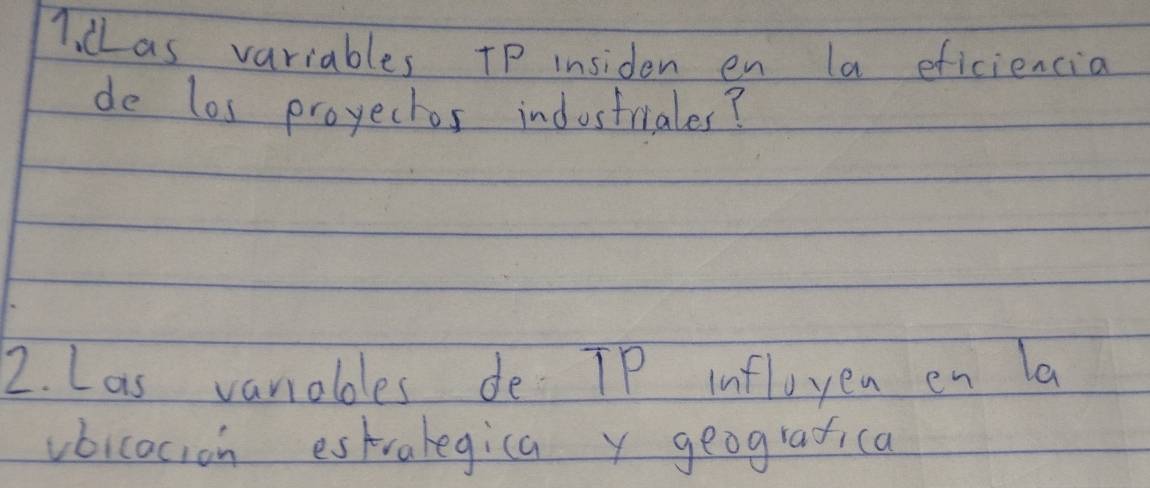 1. ¿Las variables TP insiden en la eficiencia
de los proyectos industriales?
2. Las variables de TP influyen en la
ubicación estrategica y geografica